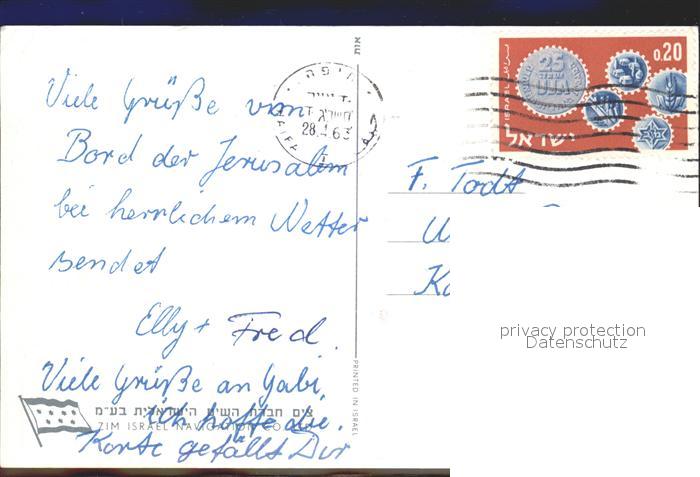 אות
Viele Grüße vom
Bord der Jerusalem
bei herrlichem Wetter
sendet
Elly + Fred.
Viele Grüße an Gabi,
ich hoffe die
Karte gefällt Dir
צים חברת השיט הישראלית בע״מ
ZIM ISRAEL NAVIGATION CO
PRINTED IN ISRAEL
חיפה
28. 63
HAIFA
0.20
ISRAEL
25
UJA
ישראל
F. Todt
privacy protection
Datenschutz